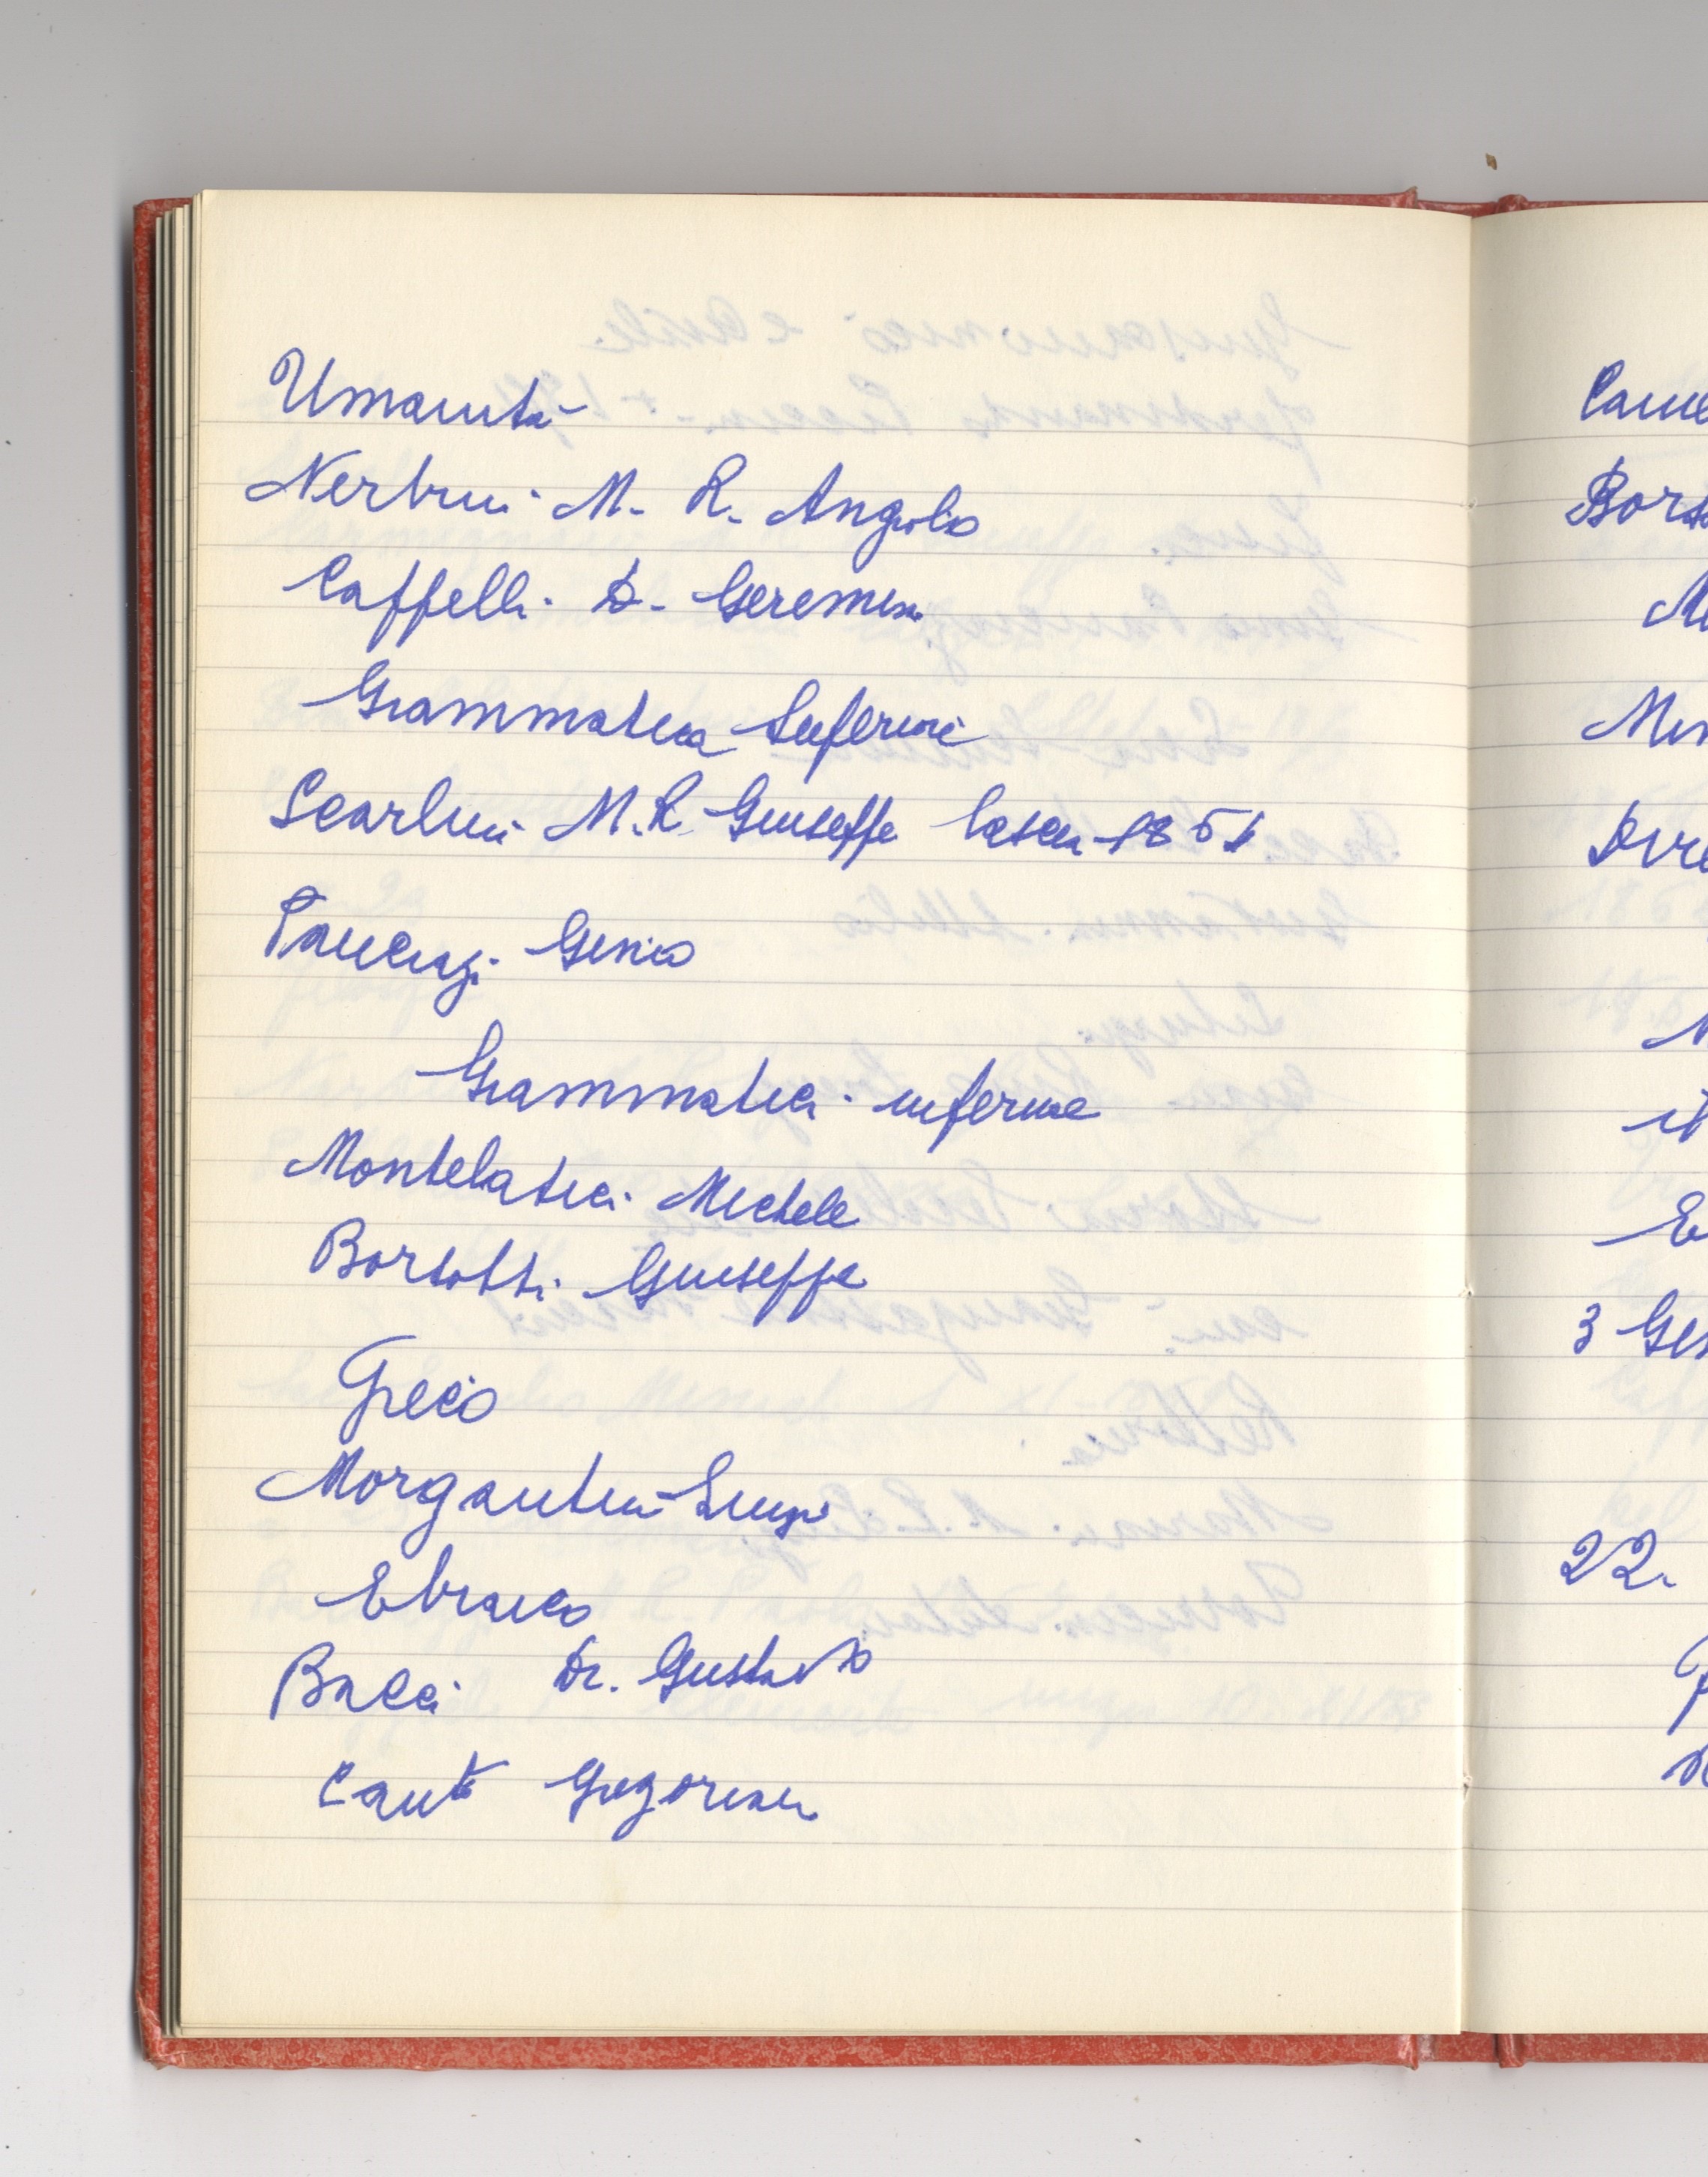 Umanità
Nerbini M. R. Angiolo
Caffelli D. Geremia
Grammatica Superiore
Scarlini M. R. Giuseppe lascia 1851
Pancrazi Genio
Grammatica inferiore
Montelatici Michele
Bortotti Giuseppe
Greco
Morgantini Luigi
Ebraico
Bacci Dr. Gustavo
Canto Gregoriano
22.